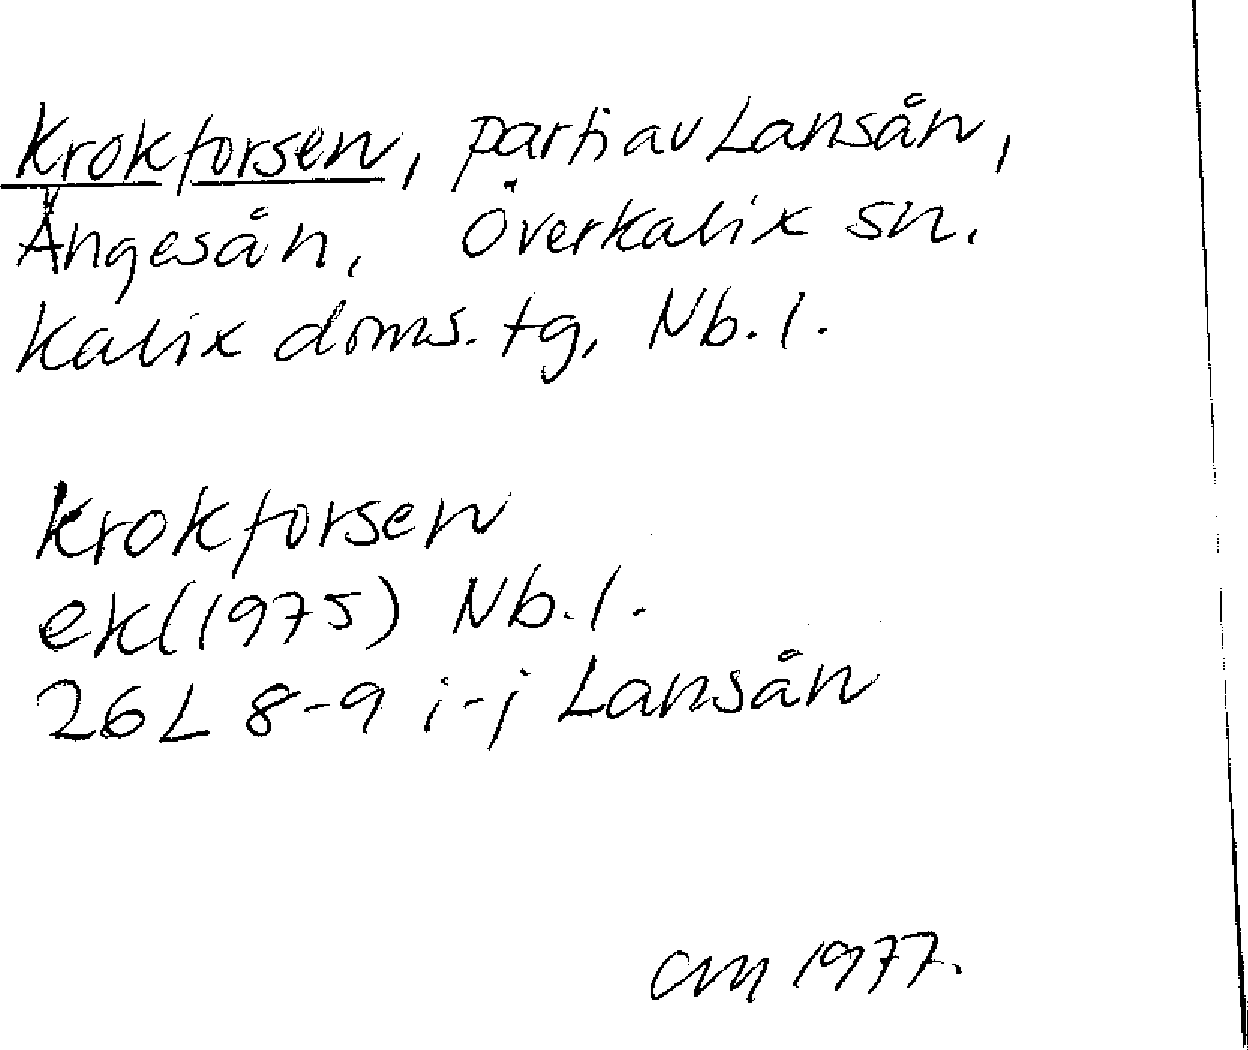 Krokforsen, parti av Lansån,
Ängesån, Överkalix sn.
Kalix doms. tg, Nb. l.
Krokforsen
ek(1975) Nb. l.
26L 8-9 i-j Lansån
CM 1977.